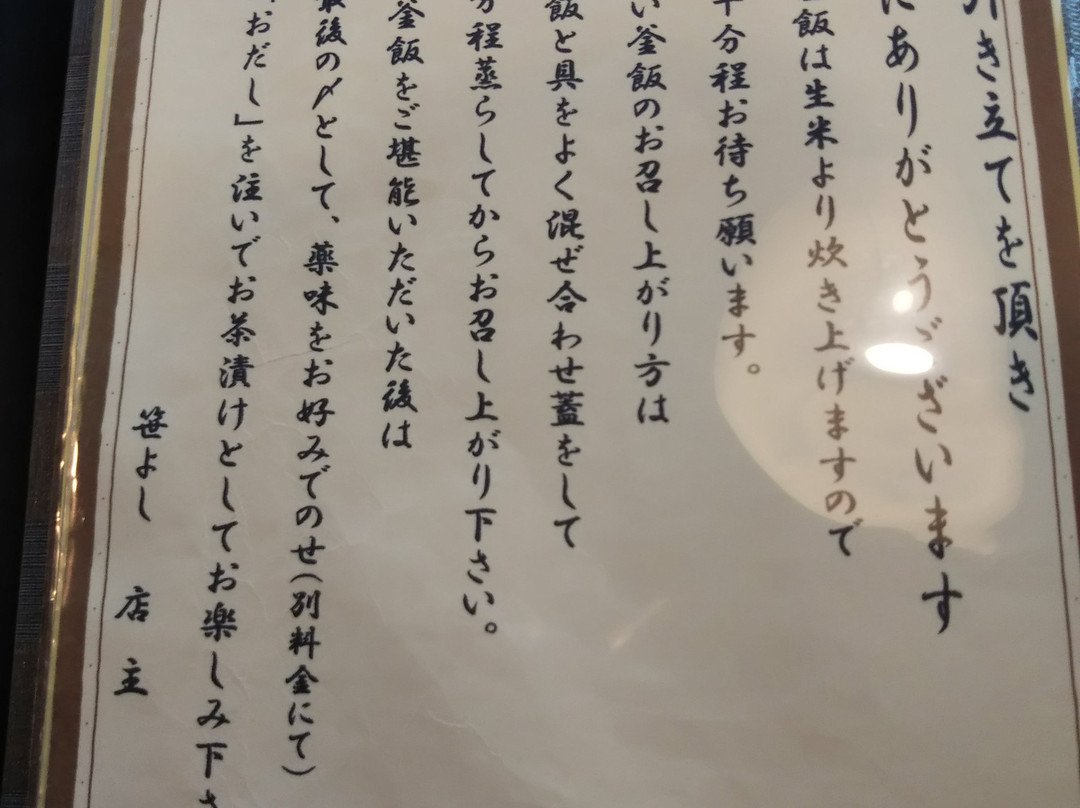 き立てを頂き
にありがとうございます
飯は生米より炊き上げますので
十分程お待ち願います。
い釜飯のお召し上がり方は
飯と具をよく混ぜ合わせ蓋をして
分程蒸らしてからお召し上がり下さい。
釜飯をご堪能いただいた後は
最後の〆として、薬味をお好みでのせ(別料金にて)
おだし」を注いでお茶漬けとしてお楽しみ下さ
笹よし 店主